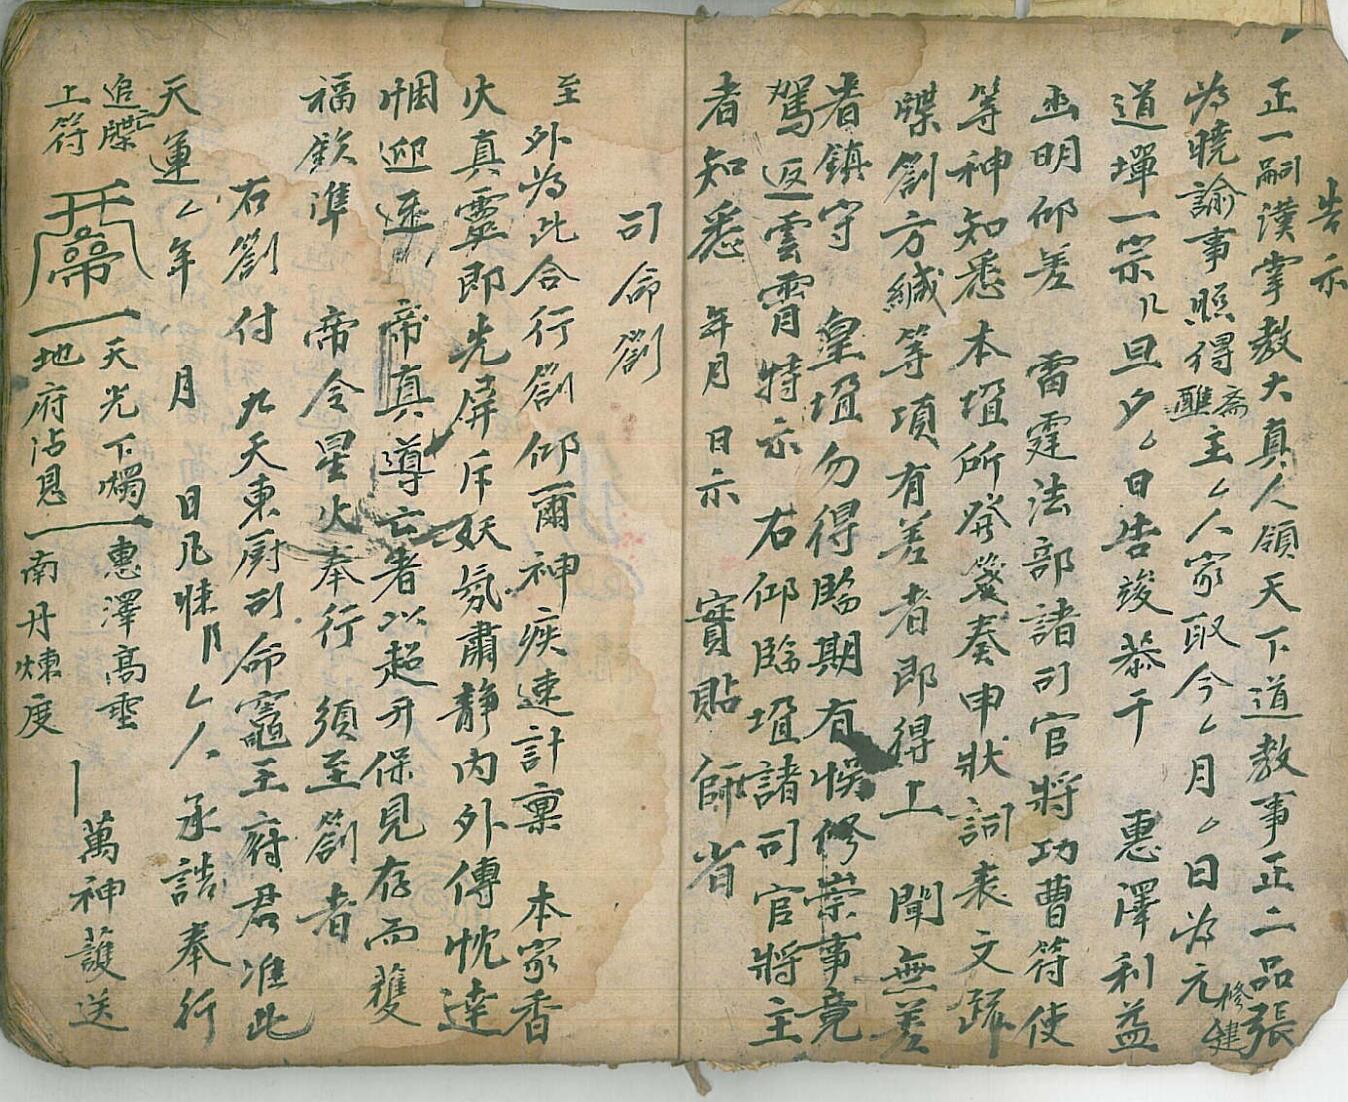 告示
正一嗣漢掌教大真人領天下道教事正二品張
為曉諭事照得齋醮主厶人家取今厶月厶日為元修建
道墠一宗凡旦夕厶日告竣恭干 惠澤利益
幽明仰差 雷霆法部諸司官將功曹符使
等神知悉本壇所發箋奏申狀詞表文疏
牒劄方緘等項有差者即得上 聞無差
者鎮守 皇壇勿得臨期有悮修崇事竟
駕返雲霄特示 右仰臨壇諸司官將主
者知悉 年月 日示 實貼 師省
司命劄
至
外為此合行劄仰爾神疾速計稟 本家香
火真靈即先屏斥妖氛肅靜內外傳忱達
悃迎逐 帝真導亡者以超升保見存而獲
福欽準 帝令星火奉行須至劄者
右劄付 九天東厨司命竈王府君准此
天運厶年 月 日凡昧 厶人承誥奉行
追牒
上符
天光下燭 惠澤高聖
地府沾恩 南丹煉度
萬神護送